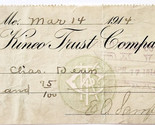 Mo. Mar 14 1914
Kinco Trust Compa
Chas. Dean
and 75/100